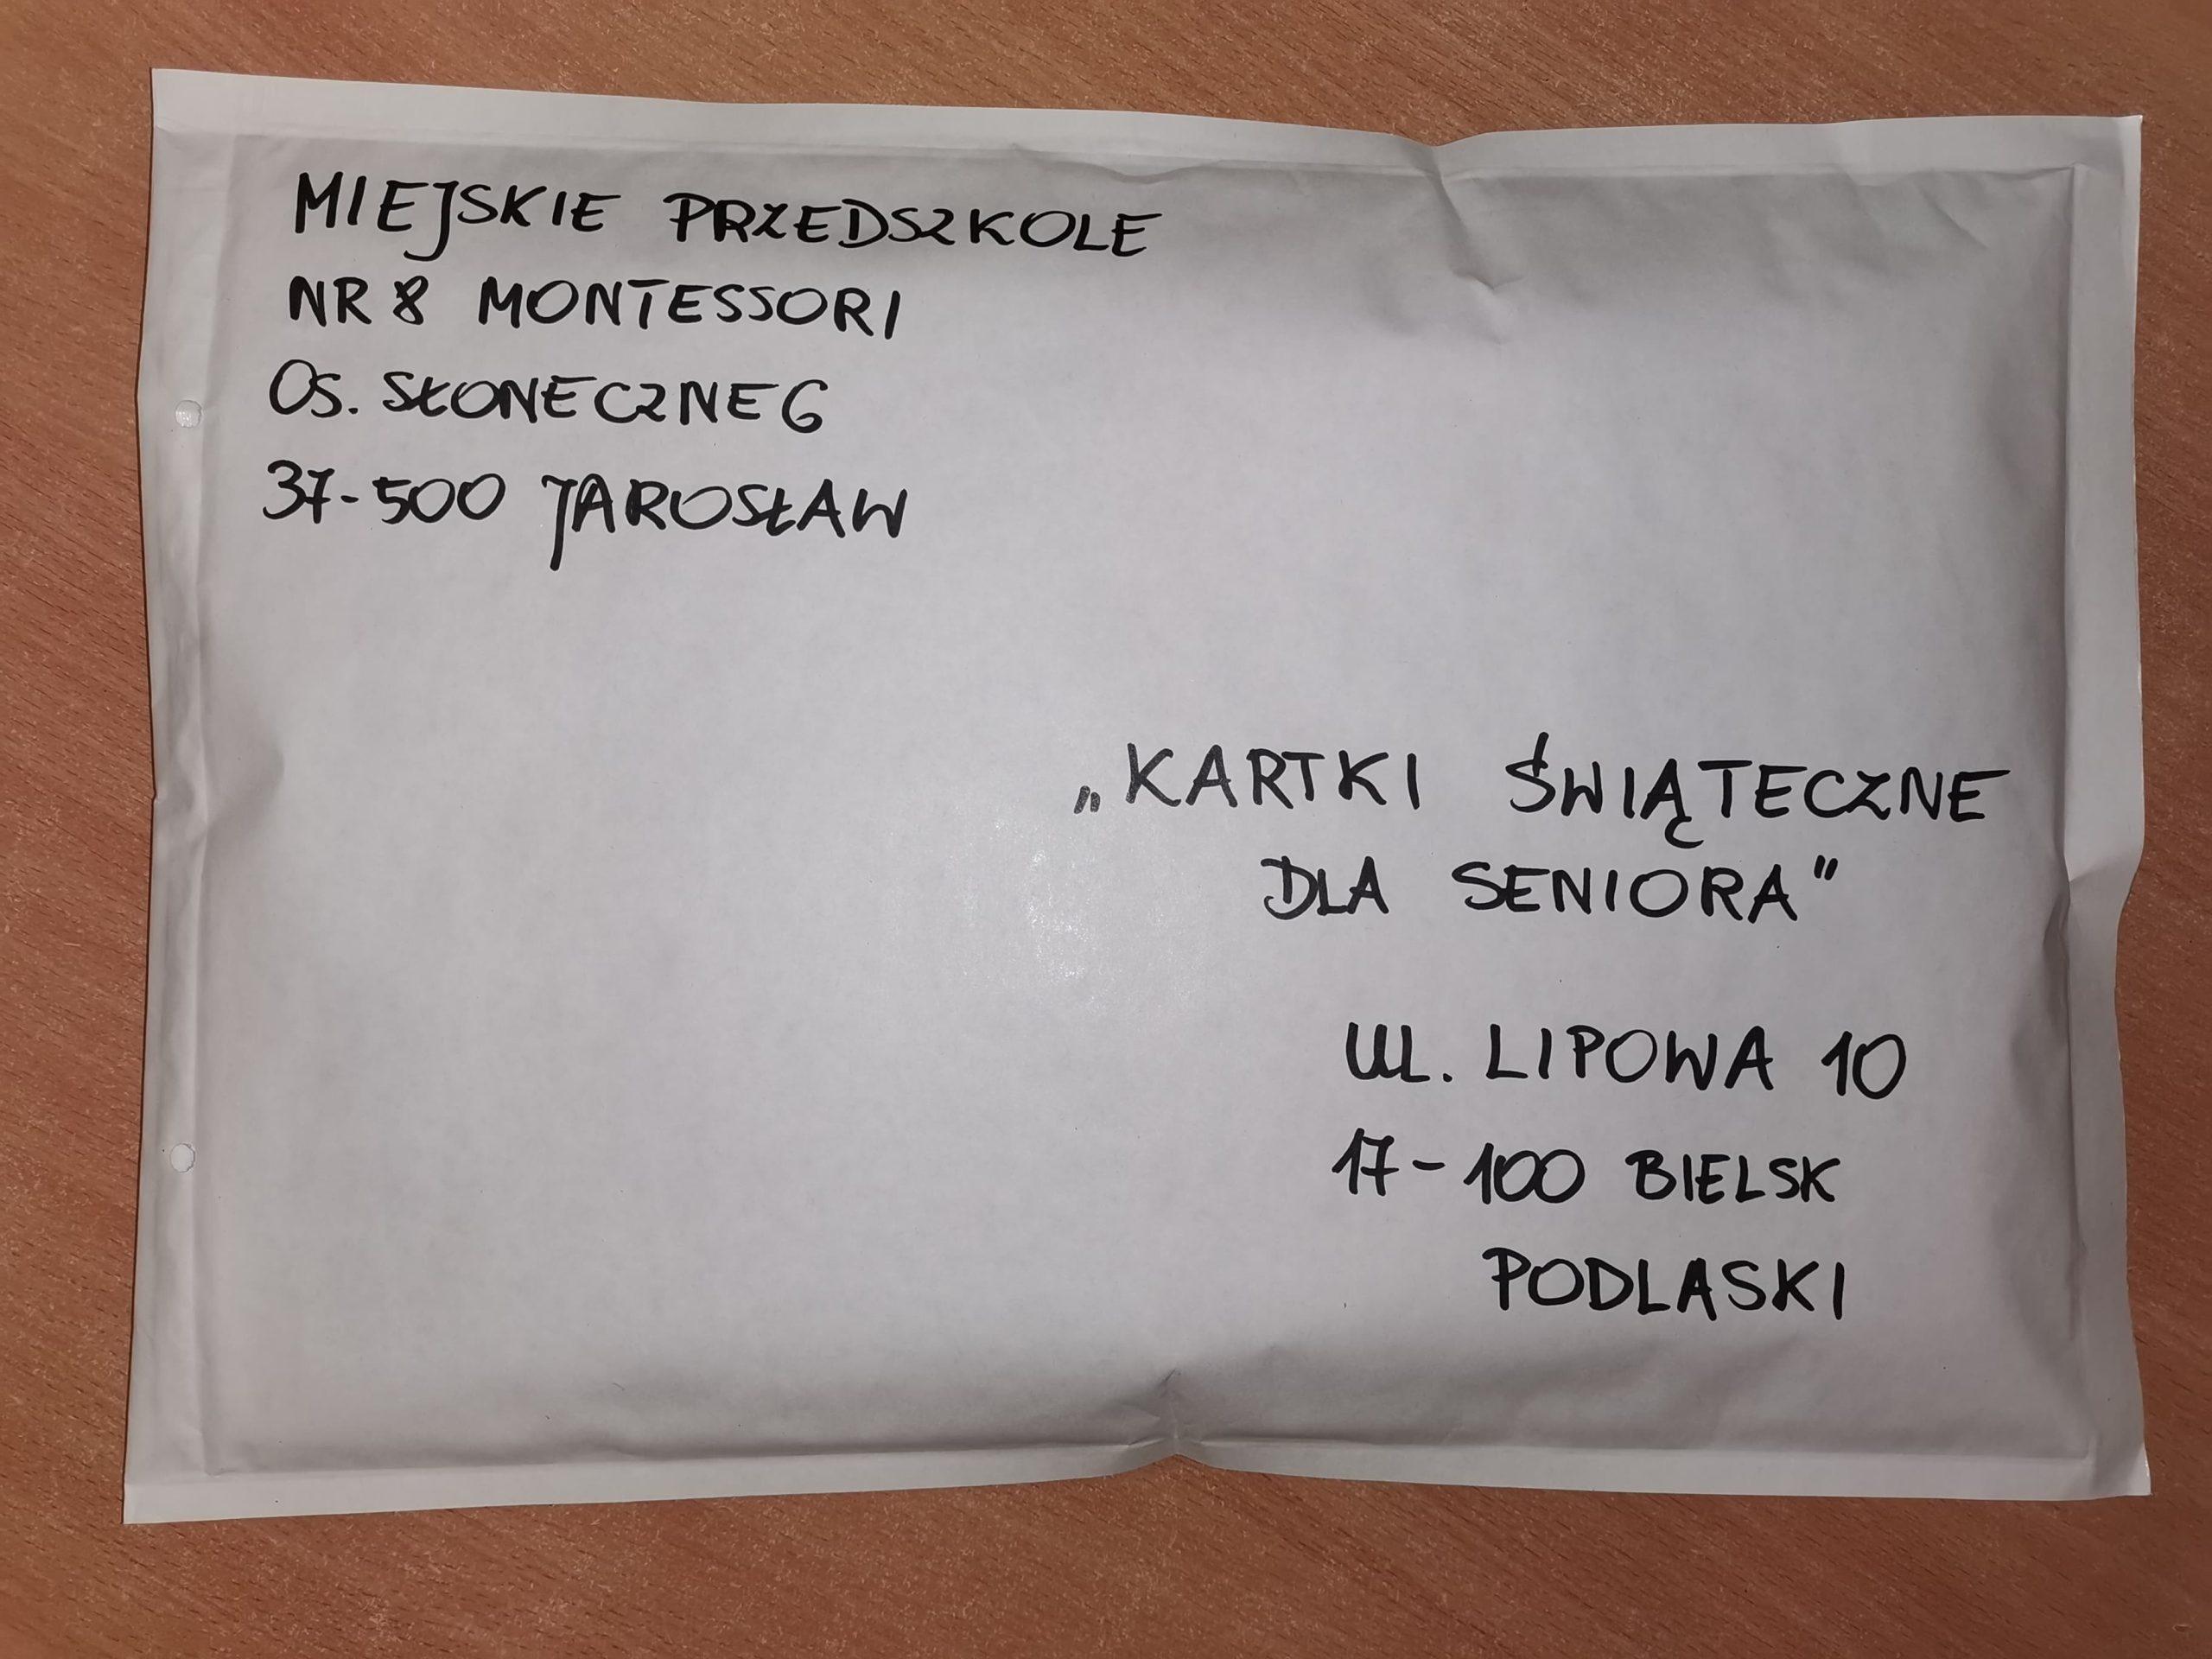 MIEJSKIE PRZEDSZKOLE
NR 8 MONTESSORI
OS. SŁONECZNE 6
37-500 JAROSŁAW
„KARTKI ŚWIĄTECZNE
DLA SENIORA"
UL. LIPOWA 10
17-100 BIELSK
PODLASKI